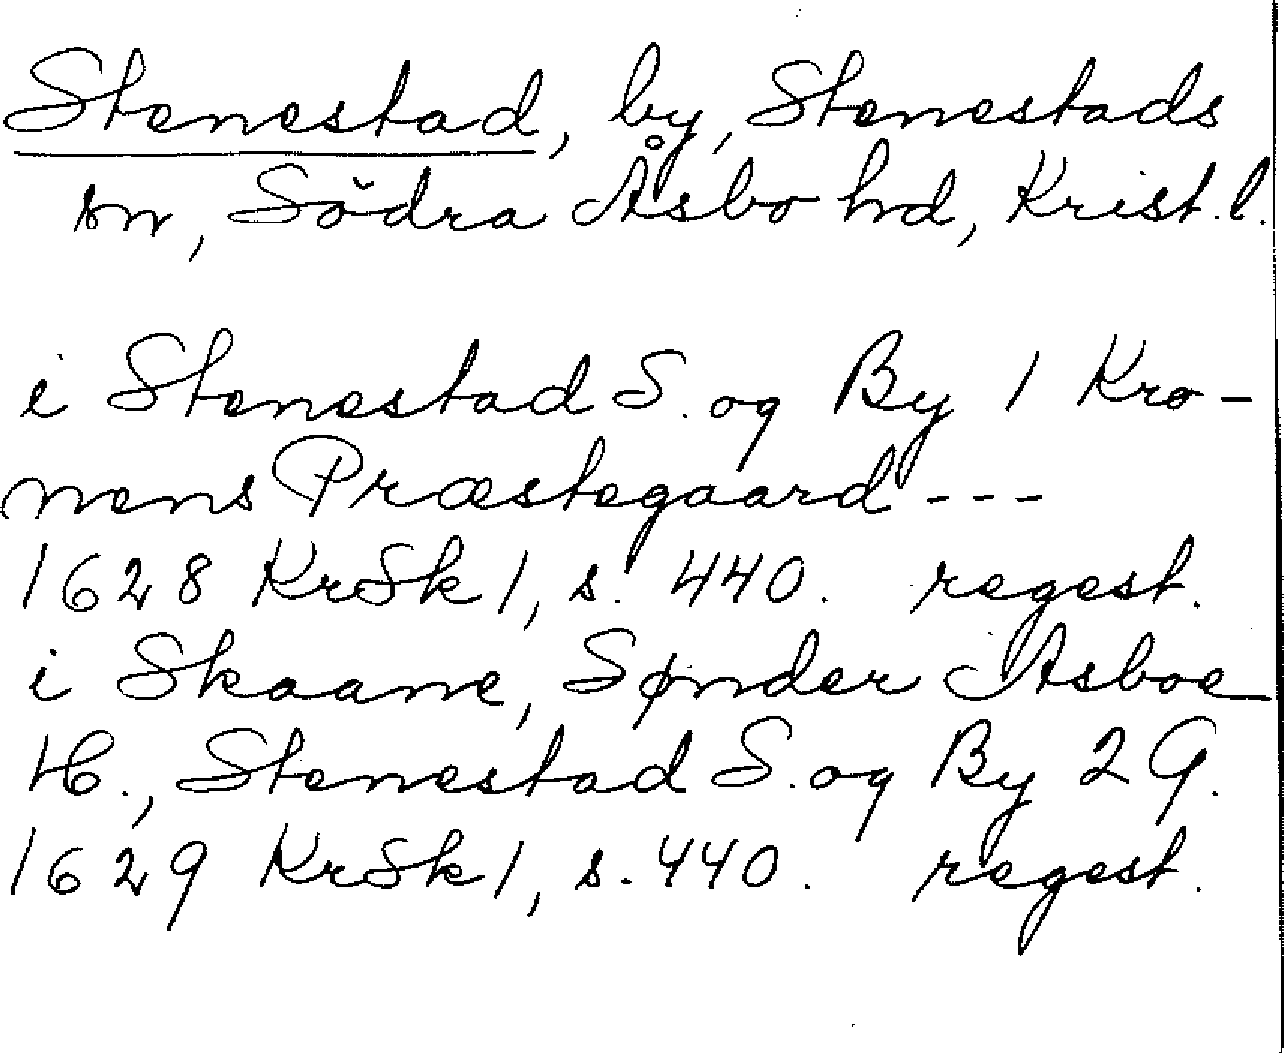 Stenestad, by, Stenestads
sn, Södra Åsbo hd, Krist. l.
i Stenestad S. og By 1 Kro-
nens Præstegaard ---
1628 KrSk 1, s. 440. regest.
i Skaane, Sønder Asboe
H., Stenestad S. og By 2 G.
1629 KrSk 1, s. 440. regest.